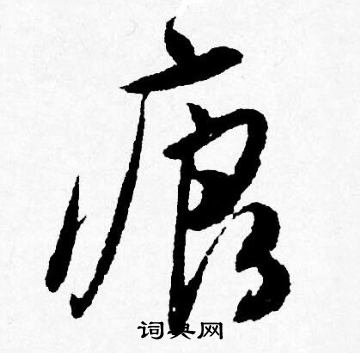 痕
词典网